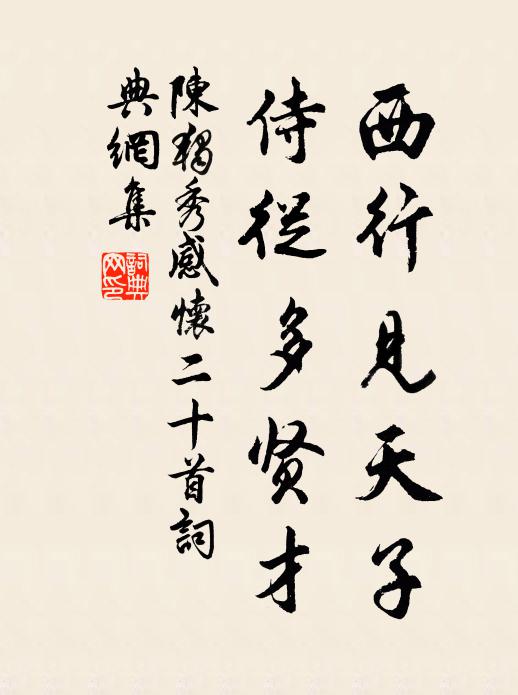 西行見天子
侍從多贤才
陳獨秀感懷二十首詞
典網集
詞典
网印